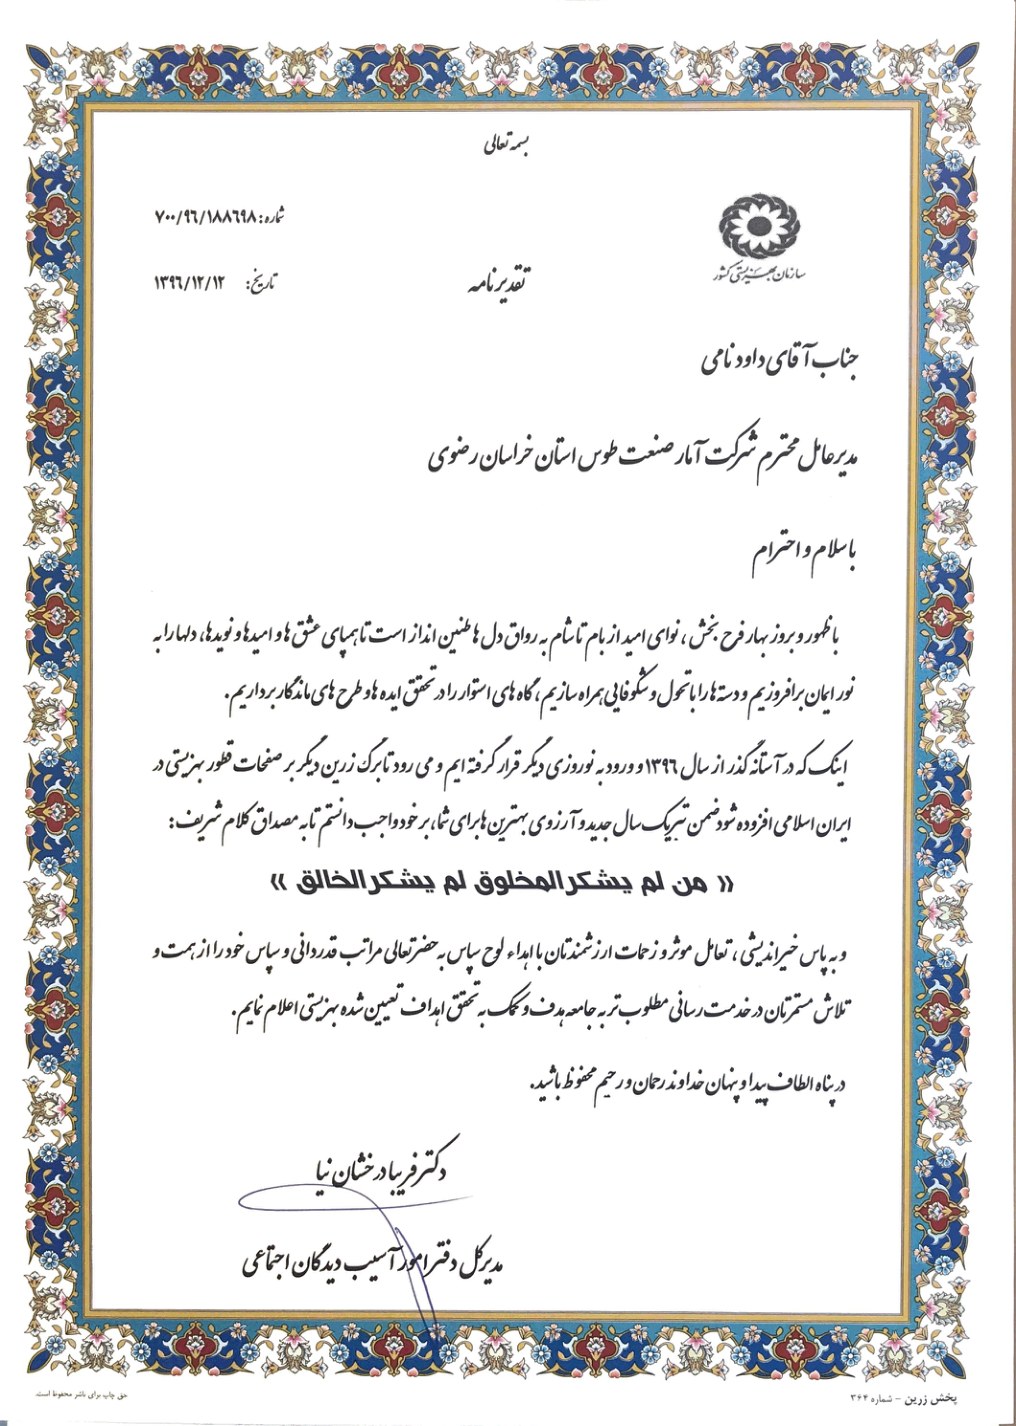 بسمه تعالی
شماره: ۷۰۰/۹۶/۱۸۸۶۹۸
سازمان بهزیستی کشور
تاریخ: ۱۳۹۶/۱۲/۱۲
تقدیرنامه
جناب آقای داود نامی
مدیرعامل محترم شرکت آمار صنعت طوس استان خراسان رضوی
باسلام و احترام
با ظهور و بروز بهار فرح بخش، نوای امید از بام تا شام به رواق دل ها طنین انداز است تا همپای عشق ها و امیدها و نویدها، دلها را به
نور ایمان برافروزیم و دسته ها را با تحول و شکوفایی همراه سازیم، گاه های استوار را در تحقق ایده ها و طرح های ماندگار برداریم.
اینک که در آستانه گذر از سال ۱۳۹۶ و ورود به نوروزی دیگر قرار گرفته ایم و می رود تا برگ زرین دیگر بر صفحات قطور بهزیستی در
ایران اسلامی افزوده شود ضمن تبریک سال جدید و آرزوی بهترین ها برای شما، بر خود واجب دانستم تا به مصداق کلام شریف:
«من لم یشکر المخلوق لم یشکر الخالق»
و به پاس خیراندیشی، تعامل موثر و زحمات ارزشمندتان با اهداء لوح سپاس به حضرتعالی مراتب قدردانی و سپاس خود را از همت و
تلاش مستمرتان در خدمت رسانی مطلوب تر به جامعه هدف و کمک به تحقق اهداف تعیین شده بهزیستی اعلام نمایم.
در پناه الطاف پیدا و پنهان خداوند رحمان و رحیم محفوظ باشید.
دکتر فریبا درخشان نیا
مدیرکل دفتر امور آسیب دیدگان اجتماعی
پخش زرین - شماره ۳۶۴
حق چاپ برای ناشر محفوظ است.